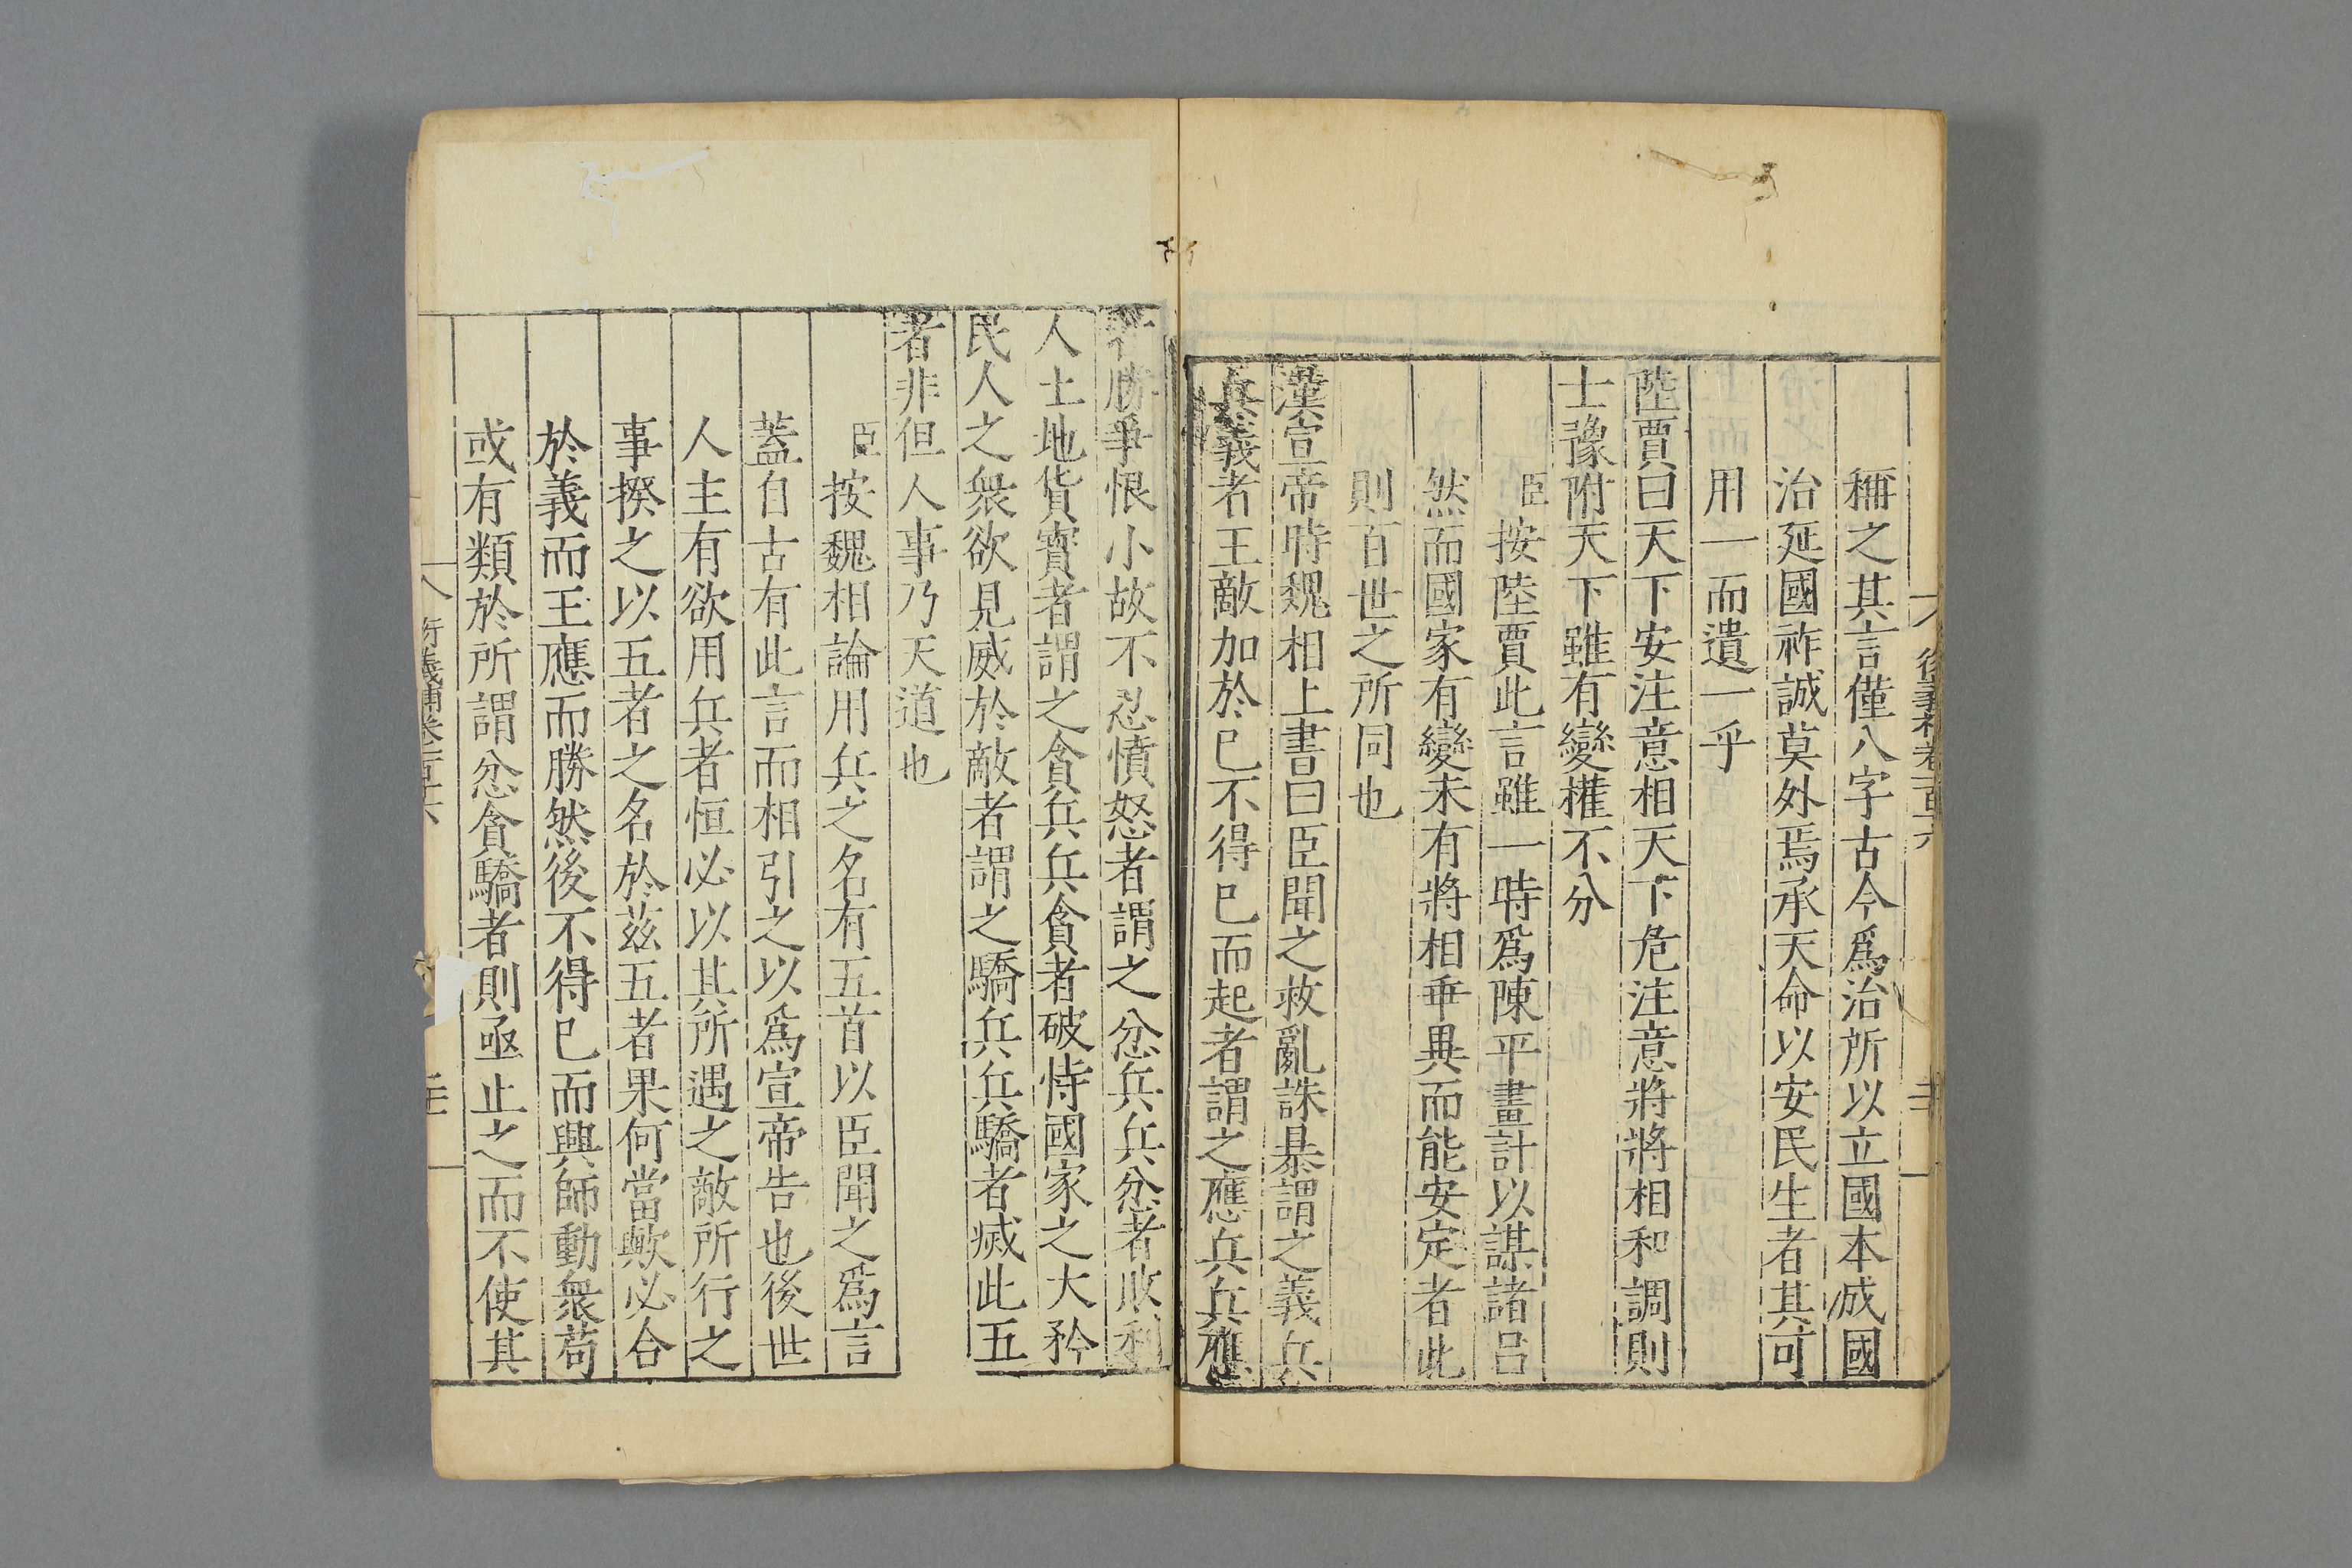 稱之其言僅八字古今爲治所以立國本成國
治延國祚誠莫外焉承天命以安民生者其可
用一而遺一乎
陸賈曰天下安注意相天下危注意將將相和調則
士豫附天下雖有變權不分
臣按陸賈此言雖一時爲陳平畫計以謀諸呂
然而國家有變未有將相乖異而能安定者此
則百世之所同也
漢宣帝時魏相上書曰臣聞之救亂誅暴謂之義兵
兵義者王敵加於已不得已而起者謂之應兵兵應
者勝爭恨小故不忍憤怒者謂之忿兵兵忿者敗利
人土地貨寳者謂之貪兵兵貪者破恃國家之大矜
民人之衆欲見威於敵者謂之驕兵兵驕者滅此五
者非但人事乃天道也
臣按魏相論用兵之名有五首以臣聞之爲言
蓋自古有此言而相引之以爲宣帝告也後世
人主有欲用兵者恒必以其所遇之敵所行之
事揆之以五者之名於茲五者果何當歟必合
於義而王應而勝然後不得已而興師動衆苟
或有類於所謂忿貪驕者則亟止之而不使其
衍義補卷一百二十六